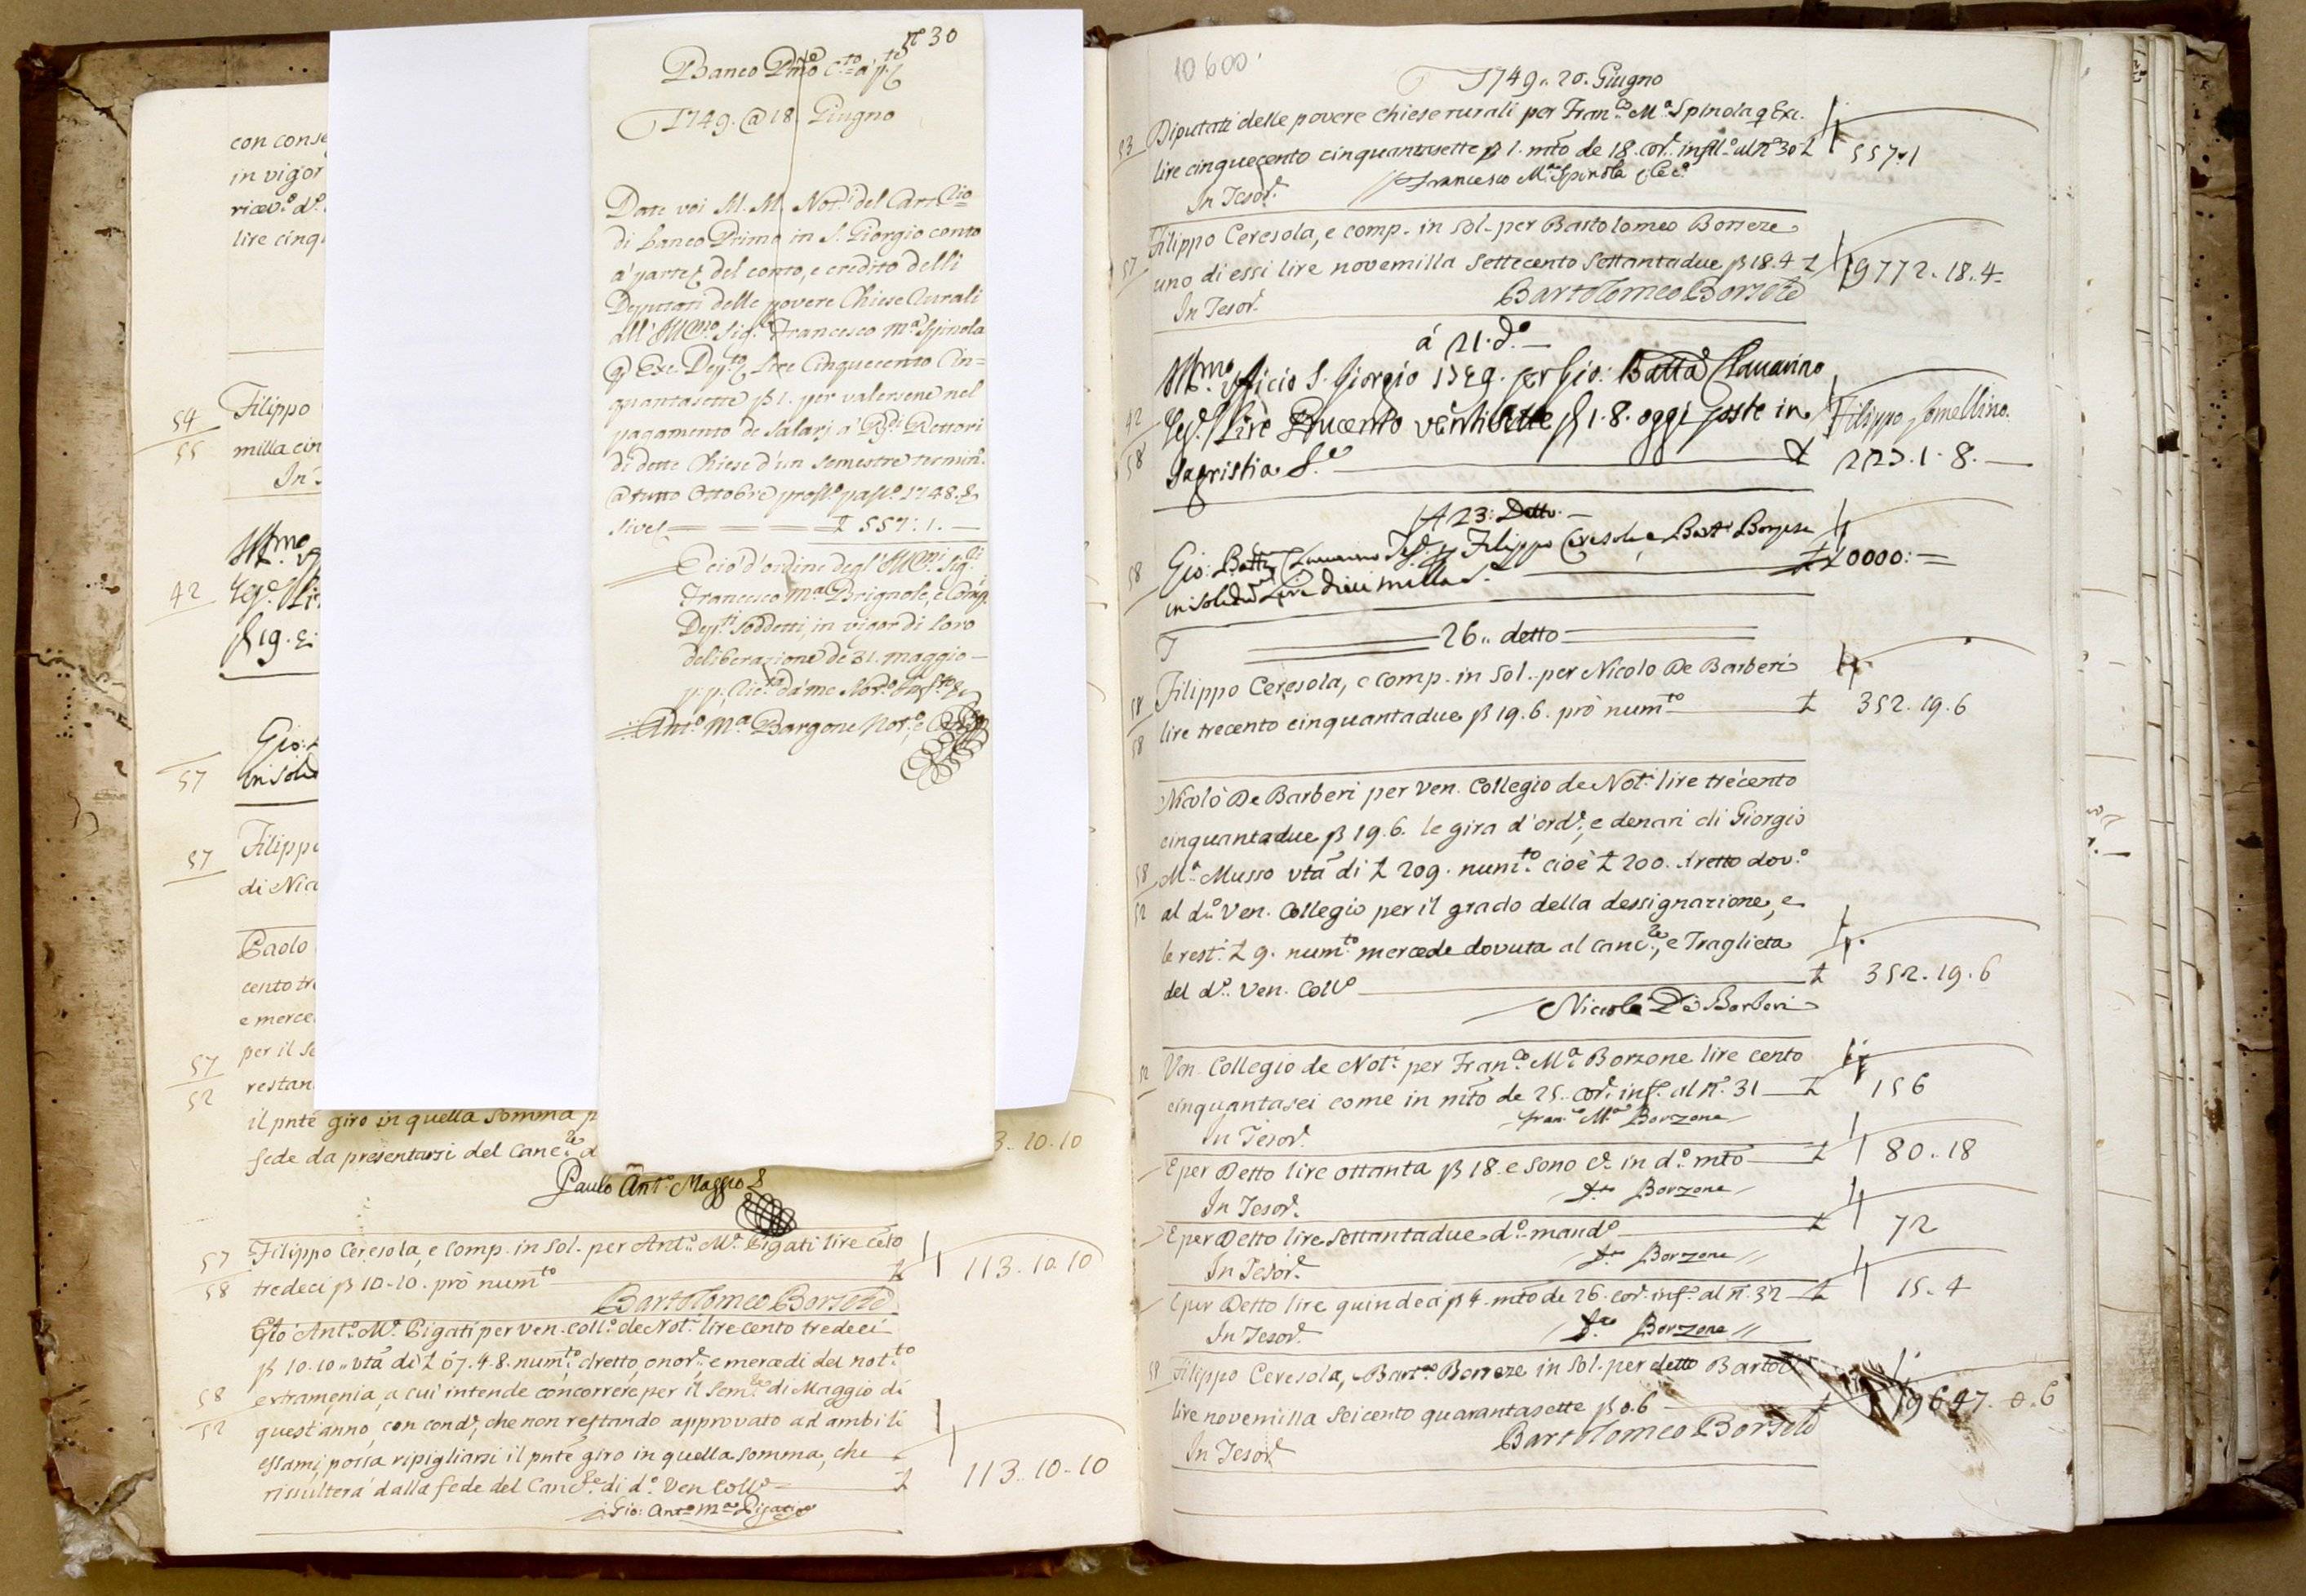 con conse
in vigor
ricev.º d.º
lire cinq
54
55
Filippo
milla cin
In
42
Ill.mo
Teș.
ß 19.
57
Gio:
in solid
57
Filippo
di Nic
Paolo
cento tr
e merce
57
52
per il se
restan
il pnte giro in quella somma p
fede da presentarsi del Canc.re d
3..10.10
Paulo Ant.º Maggio
57
58
Filippo Ceresola, e Comp. in sol. per Ant.º M.ª Pigati lire cẽto
tredeci ß 10.10. prò num.to £ 113.10.10
Bartolomeo Borseze
Gio Ant.º M.ª Pigati per Ven. Coll.º de Not.i lire cento tredeci
ß 10.10.. vtã di £ 67.4.8. num.to, dretto, onor.º, e mercedi del not.to
58
52
extramenia, a cui intende concorrere per il sem.re di Maggio di
quest'anno, con cond.e, che non restando approvato ad ambi li
essami, possa ripigliarsi il pnte giro in quella somma, che
risulterà dalla fede del Canc.re di d.º Ven Coll.º £ 113..10-10
Gio: Ant.º M.ª Pigati
n.º 30
Banco Pmõ C.to à p.te
1749. @ 18 Giugno
Date voi M. M. Not.i del Cart.rio
di banco Primo in S. Giorgio conto
a' parte del conto, e credito delli
Deputati delle povere Chiese Rurali
all'Ill.mo Sig.r Francesco M.ª Spinola
q Exc. Dep.to lire Cinquecento Cin=
quantasette ß 1. per valersene nel
pagamento de salarj a' R.di Rettori
di dette Chiese d'un semestre termin.
@ tutto Ottobre pross.º pass.º 1748. &
sive £ 557:1.—
E ciò d'ordine degl'Ill.mi Sig.ri
Francesco M.ª Brignole, e Comp.
Dep.ti soddetti, in vigor di loro
deliberazione de 31. maggio—
p. p.
Ant.º M.ª Bargone Not.º, e Canc.re
10600
1749.. 20. Giugno
53
Diputati delle povere chiese rurali per Fran.co M.ª Spinola q Exc.
lire cinquecento cinquantasette ß 1. mtõ de 18. cor.e infil.º al n.º 30 £ 557.1
Francesco M.ª Spinola
In Tesor.ª
57
Filippo Ceresola, e comp. in sol. per Bartolomeo Borseze
uno di essi lire novemilla settecento settantadue ß 18.4 £ 9772.18.4
In Tesor.ª Bartolomeo Borseze
á 21. d.º
Ill.mo Officio S. Giorgio 1749. per Gio: Batta Clavarino
42
58
Tes.º lire Ducento ventitre ß 1.8. oggi poste in Filippo Lomellino
Sagristia £ 223.1.8.—
A 23: Detto.
58
Gio: Batta Clavarino Tes.º p Filippo Ceresola, e Bart.º Borsese
in solidũ Lire dieci milla £ 10000:=
26.. detto
58
58
Filippo Ceresola, e comp. in sol. per Nicolo De Barberi
lire trecento cinquantadue ß 19.6. prò num.to £ 352.19.6
Nicolò De Barberi per Ven. Collegio de Not.i lire trecento
cinquantadue ß 19.6. le gira d'ord.e, e denari di Giorgio
58
52
M.ª Musso vtã di £ 209. num.to cioè £ 200. dretto dov.º
al d.º Ven. Collegio per il grado della dessignazione, e
le rest.i £ 9. num.to mercede dovuta al canc.re, e Traglieta
del d.º Ven. Coll.º £ 352.19.6
Niccolò De Barberi
52
Ven. Collegio de Not.i per Fran.co M.ª Borzone lire cento
cinquantasei come in mtõ de 25. cor.e inf.º al n.º 31 £ 156
Fran.co M.ª Borzone
In Tesor.ª
E per Detto lire ottanta ß 18. e sono c.e in d.º mtõ £ 80.18
In Tesor.ª D.to Borzone
E per Detto lire settantadue d.º mand.º £ 72
In Tesor.ª D.to Borzone
E per Detto lire quindeci ß 4. mtõ de 26. cor.e inf.º al n.º 32 £ 15.4
In Tesor.ª D.to Borzone
58
Filippo Ceresola, Bart.eo Borseze in sol. per detto Bartol.
lire novemilla seicento quarantasette ß 0.6 £ 9647.0.6
In Tesor.ª Bartolomeo Borseze